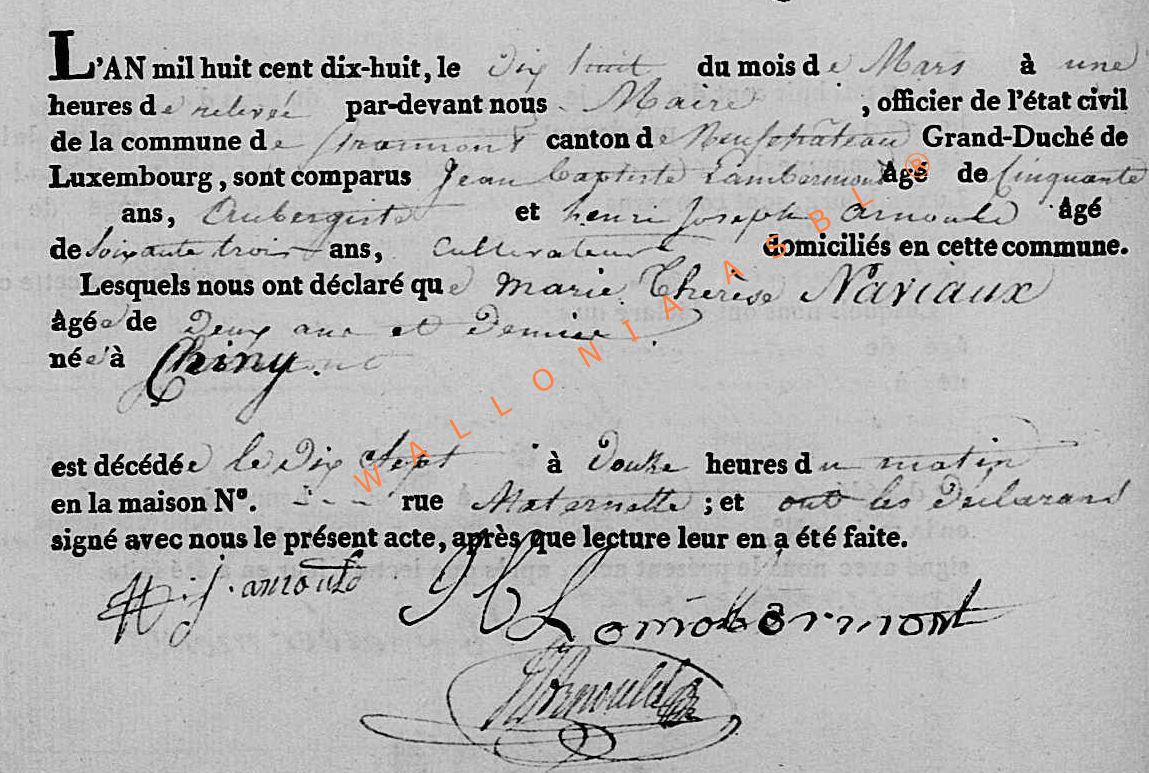 L'AN mil huit cent dix-huit, le dix huit du mois de Mars à une
heures de relevée par-devant nous Maire, officier de l'état civil
de la commune de Straimont canton de Neufchâteau Grand-Duché de
Luxembourg, sont comparus Jean Baptiste Lambermont âgé de Cinquante
ans, Aubergiste et henri Joseph Arnould âgé
de Soixante trois ans, Cultivateur domiciliés en cette commune.
Lesquels nous ont déclaré que Marie Therèse Naviaux
âgée de Deux ans et Demie
née à Chiny.
est décédée le Dix Sept à Douze heures du matin
en la maison N°. - - - rue Maternelle ; et ont les Déclarans
signé avec nous le présent acte, après que lecture leur en a été faite.
H. j. arnould Lambermont
Arnould
WALLONIA ASBL ®